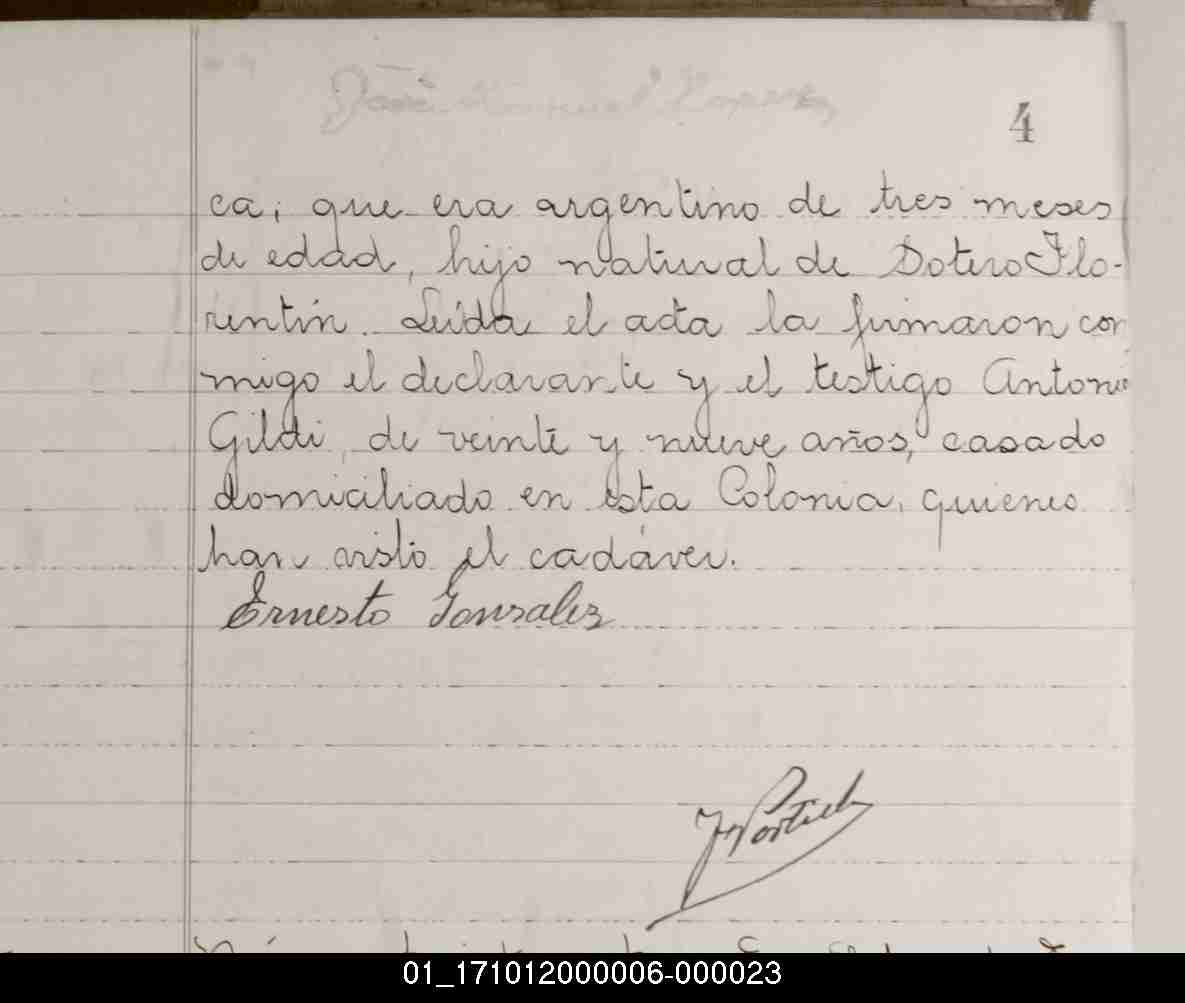 4
ca, que era argentino de tres meses
de edad, hijo natural de Sotero Flo-
rentín. Leída el acta la firmaron con
migo el declarante y el testigo Antonio
Gildi, de veinte y nueve años, casado
domiciliado en esta Colonia, quienes
han visto el cadáver.
Ernesto Gonsalez
01_171012000006-000023